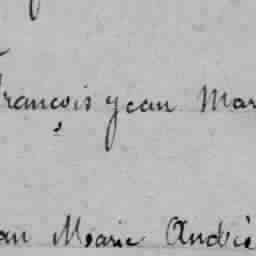 François Jean Mar
an Marie André